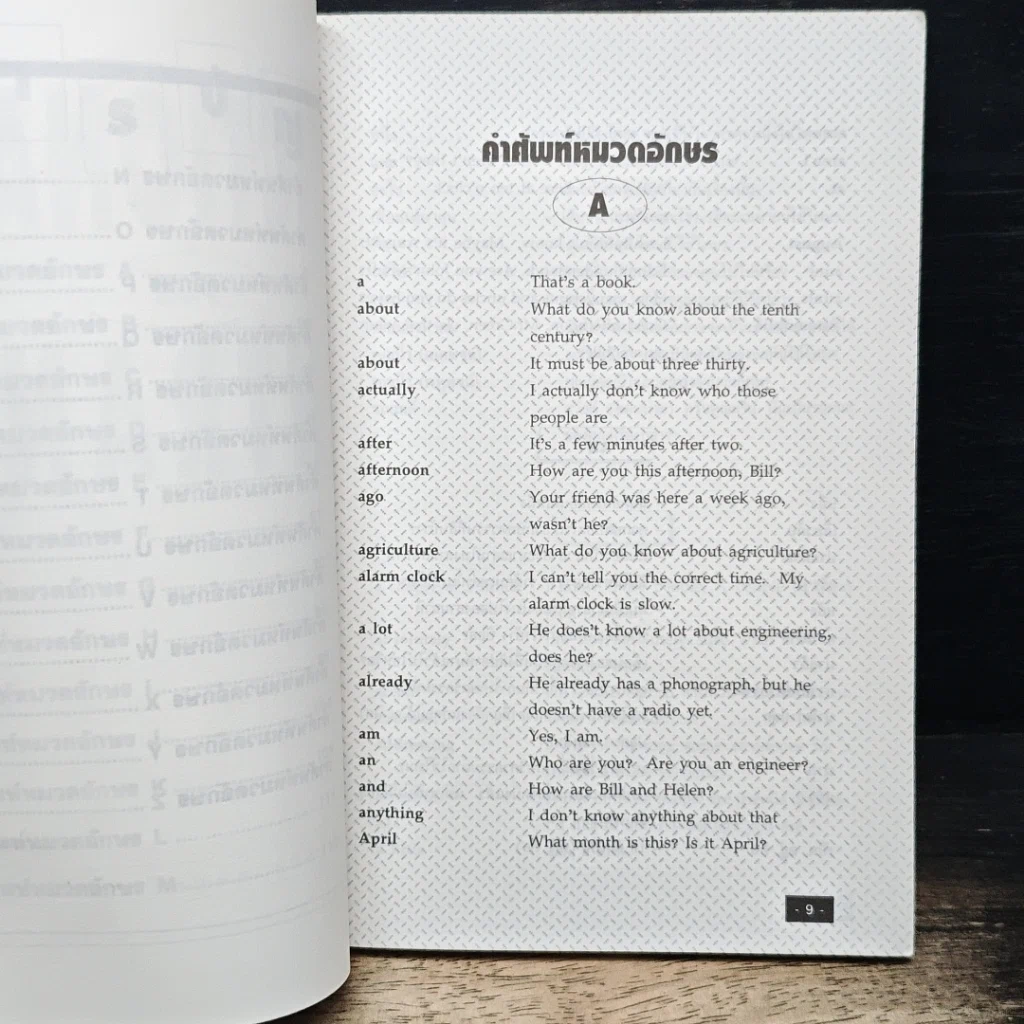 คำศัพท์หมวดอักษร
A
a That's a book.
about What do you know about the tenth
century?
about It must be about three thirty.
actually I actually don't know who those
people are
after It's a few minutes after two.
afternoon How are you this afternoon, Bill?
ago Your friend was here a week ago,
wasn't he?
agriculture What do you know about agriculture?
alarm clock I can't tell you the correct time. My
alarm clock is slow.
a lot He does't know a lot about engineering,
does he?
already He already has a phonograph, but he
doesn't have a radio yet.
am Yes, I am.
an Who are you? Are you an engineer?
and How are Bill and Helen?
anything I don't know anything about that
April What month is this? Is it April?
- 9 -